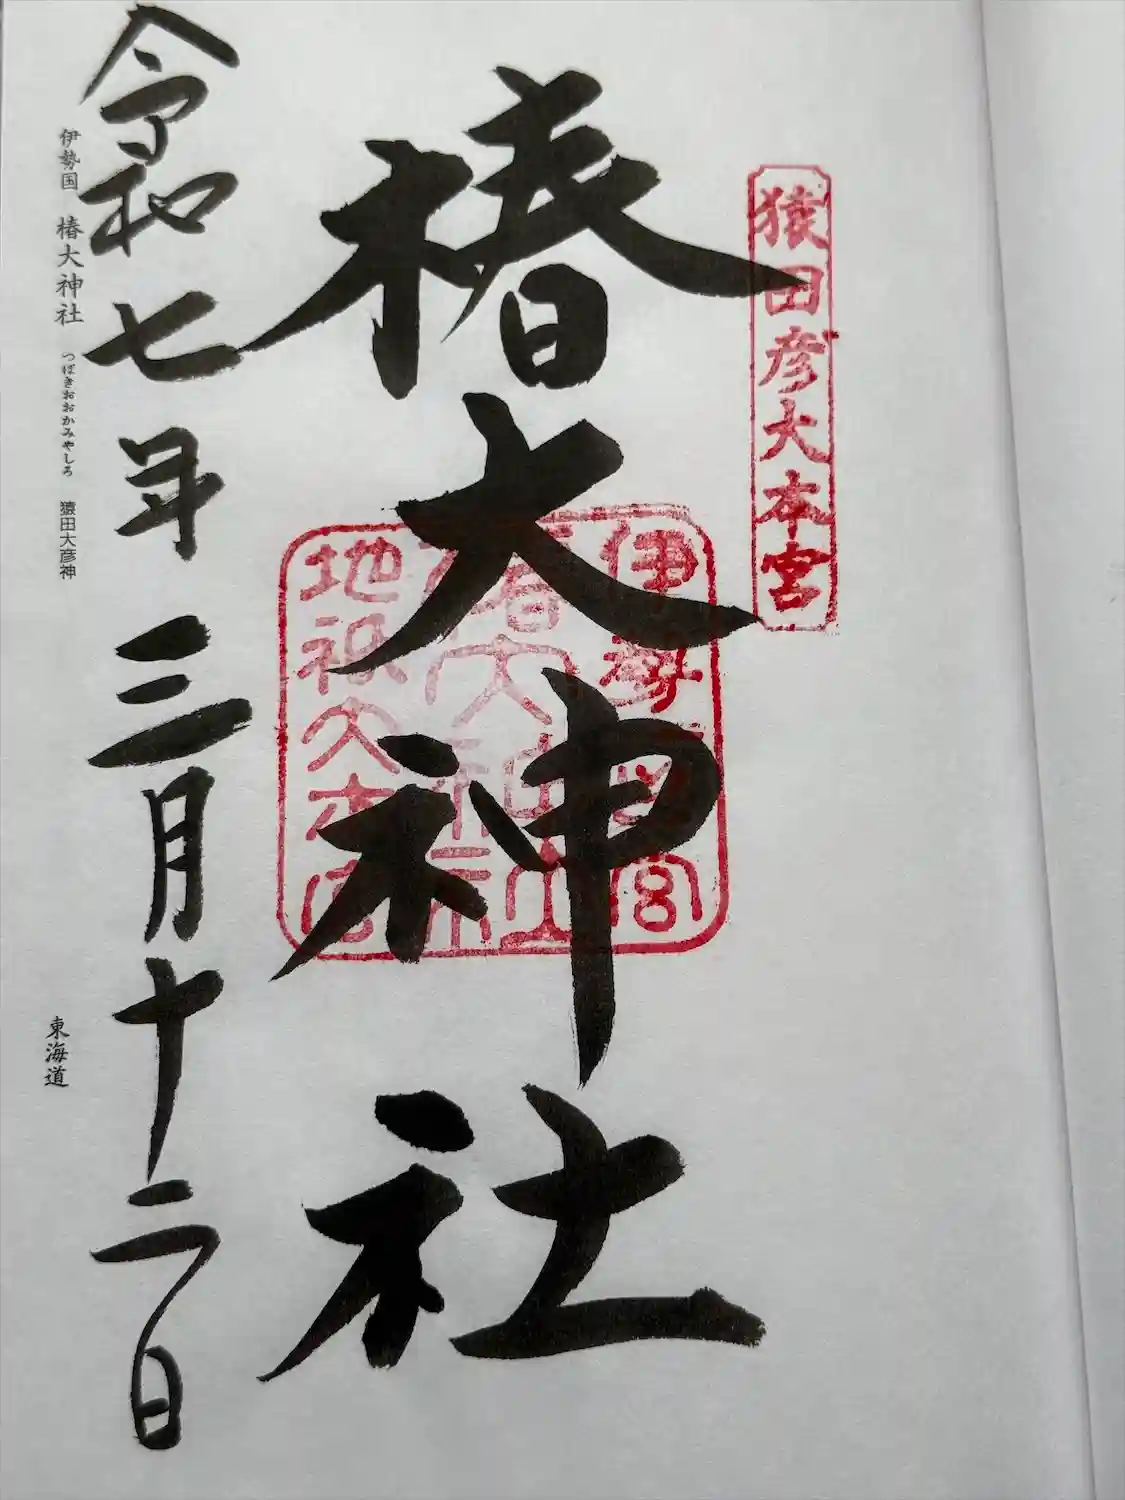 猿田彦大本宮
椿大神社
伊勢一之宮
椿大神社
地祇大本宮
令和七年三月十二日
伊勢国 椿大神社 つばきおおかみやしろ 猿田大彦神
東海道